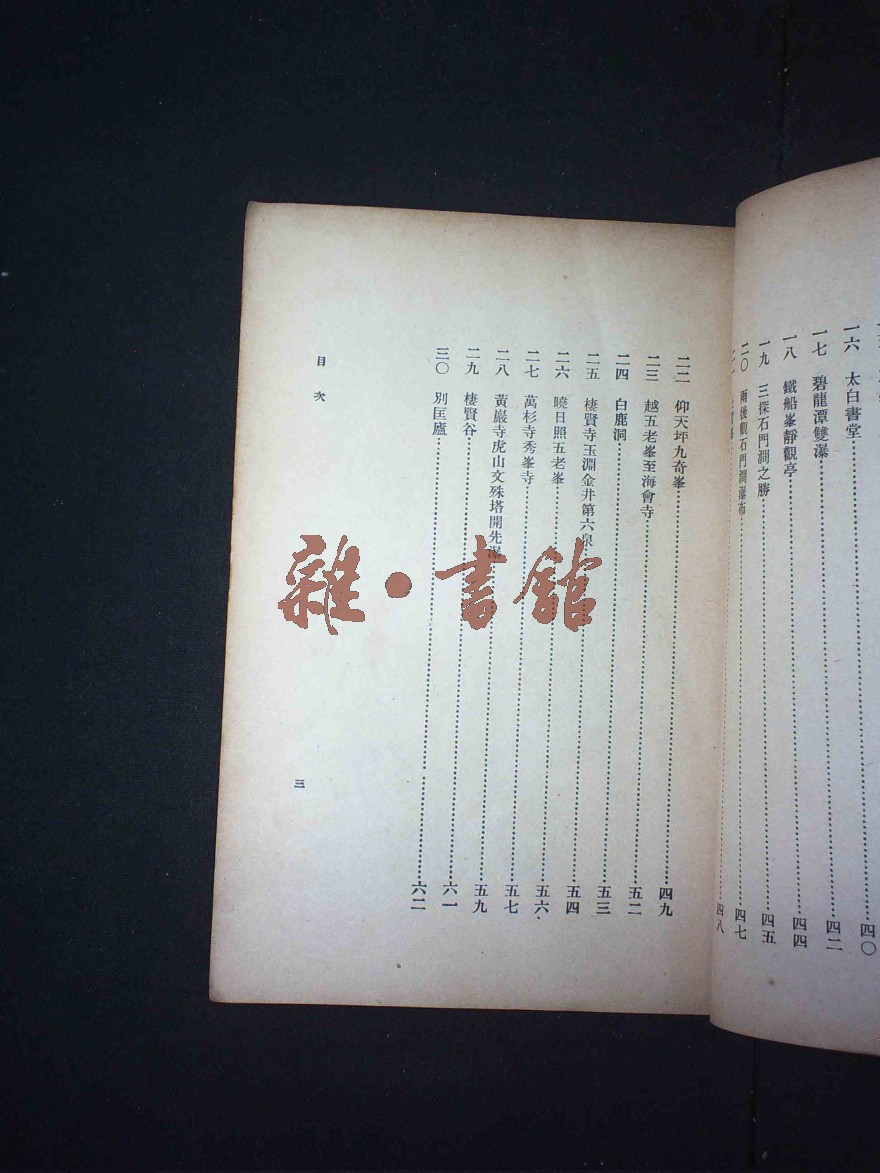 一六　太白書堂……四〇
一七　碧龍潭雙瀑……四二
一八　鐵船峯靜觀亭……四四
一九　三探石門澗之勝……四五
二〇　雨後觀石門澗瀑布……四七
……四八
二二　仰天坪九奇峯……四九
二三　越五老峯至海會寺……五二
二四　白鹿洞……五三
二五　棲賢寺玉淵金井第六泉……五四
二六　曉日照五老峯……五六
二七　萬杉寺秀峯寺……五七
二八　黃巖寺虎山文殊塔開先……五九
二九　棲賢谷……六一
三〇　別匡廬……六二
目次
三
雜·書館